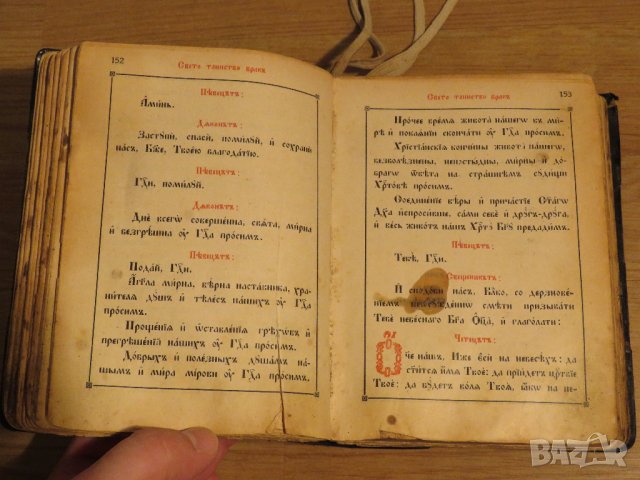 152
Свето таинство бракъ
Пѣвецътъ:
А҆ми́нь.
Дїаконътъ:
Застꙋпѝ, спасѝ, поми́лꙋй, и҆ сохранѝ
насъ, Бж҃е, Твое́ю благода́тїю.
Пѣвецътъ:
Гд҇и, поми́лꙋй.
Дїаконътъ:
Днѐ всегѡ̀ соверше́нна, свѧ́та, ми́рна
и҆ безгрѣ́шна ᲂу҆ Гд҇а про́симъ.
Пѣвецътъ:
Пода́й, Гд҇и.
А҆́гг҃ла ми́рна, вѣ́рна наста́вника, хра-
ни́телѧ дꙋ́шъ и҆ тѣле́съ на́шихъ ᲂу҆ Гд҇а
про́симъ.
Проще́нїѧ и҆ ѡ҆ставле́нїѧ грѣхѡ́въ и҆
прегрѣше́нїй на́шихъ ᲂу҆ Гд҇а про́симъ.
До́брыхъ и҆ поле́зныхъ дꙋша́мъ на́-
шымъ и҆ ми́ра мі́рови ᲂу҆ Гд҇а про́симъ.
153
Свето таинство бракъ
Про́чее вре́мѧ живота̀ на́шегѡ въ ми́-
рѣ и҆ покаѧ́нїи сконча́ти ᲂу҆ Гд҇а про́симъ.
Хрїстїа́нскїѧ кончи́ны живота̀ на́шегѡ,
безболѣ́зненны, непосты́дны, ми́рны и҆ до́-
брагѡ ѿвѣ́та на стра́шнѣмъ сꙋди́щи
Хрⷭ҇то́вѣ про́симъ.
Соедине́нїе вѣ́ры и҆ прича́стїе Ст҃а́гѡ
Дх҃а и҆спроси́вше, са́ми себѐ и҆ дрꙋ́гъ-дрꙋ́га,
и҆ ве́сь живо́тъ на́шъ Хрⷭ҇тꙋ̀ Бг҃ꙋ предади́мъ.
Пѣвецътъ:
Тебѣ̀, Гд҇и.
Свещеникътъ:
И҆ сподо́би на́съ, Вл҃ко, со дерзнове́-
нїемъ неѡсꙋжде́ннѡ смѣ́ти призыва́ти
Тебѐ небе́снаго Бг҃а Ѻ҆ц҃а̀, и҆ глаго́лати:
Четецътъ:
Ѻ҆́тче на́шъ. И҆́же є҆сѝ на небесѣ́хъ: да
свѧти́тсѧ и҆́мѧ Твоѐ: да прїи́детъ ца́рствїе
Твоѐ: да бꙋ́детъ во́лѧ Твоѧ̀, ꙗ҆́кѡ на не-
BAZAR
.bg